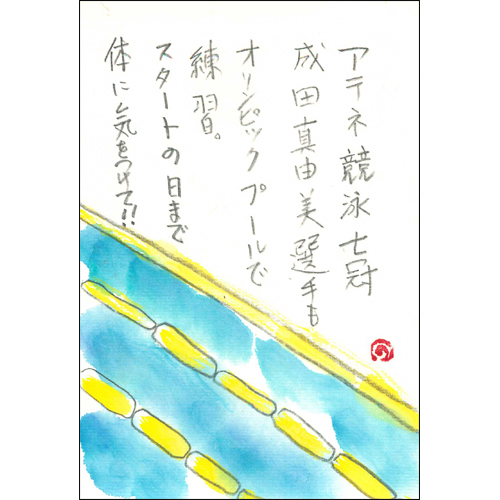 アテネ競泳七冠
成田真由美選手も
オリンピックプールで
練習。
スタートの日まで
体に気をつけて!!